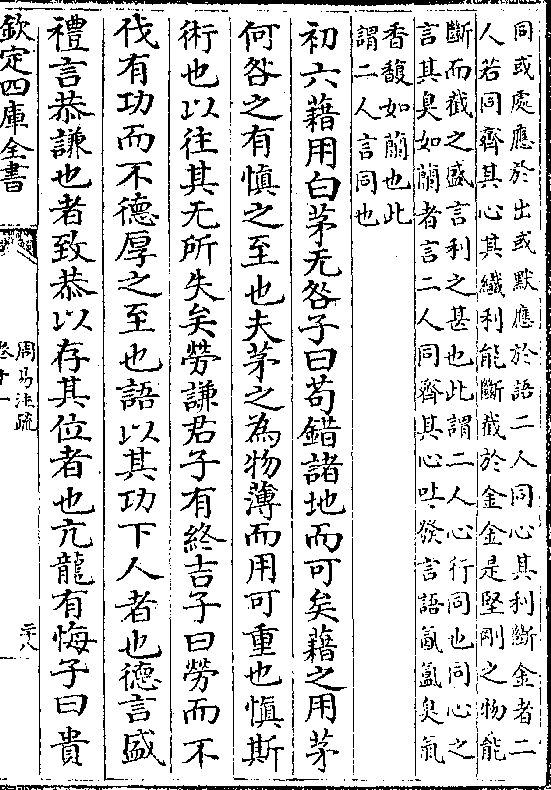 同或處應於出或默應於語二人同心其利斷金者二
人若同齊其心其纎利能斷截於金金是堅剛之物能
斷而截之盛言利之甚也此謂二人心行同也同心之
言其臭如蘭者言二人同齊其心吐發言語氤氲臭氣
香馥如蘭也此
謂二人言同也
初六藉用白茅无咎子曰苟錯諸地而可矣藉之用茅
何咎之有慎之至也夫茅之為物薄而用可重也慎斯
術也以往其无所失矣勞謙君子有終吉子曰勞而不
伐有功而不德厚之至也語以其功下人者也德言盛
禮言恭謙也者致恭以存其位者也亢龍有悔子曰貴
欽定四庫全書
周易注疏
卷十一
二八